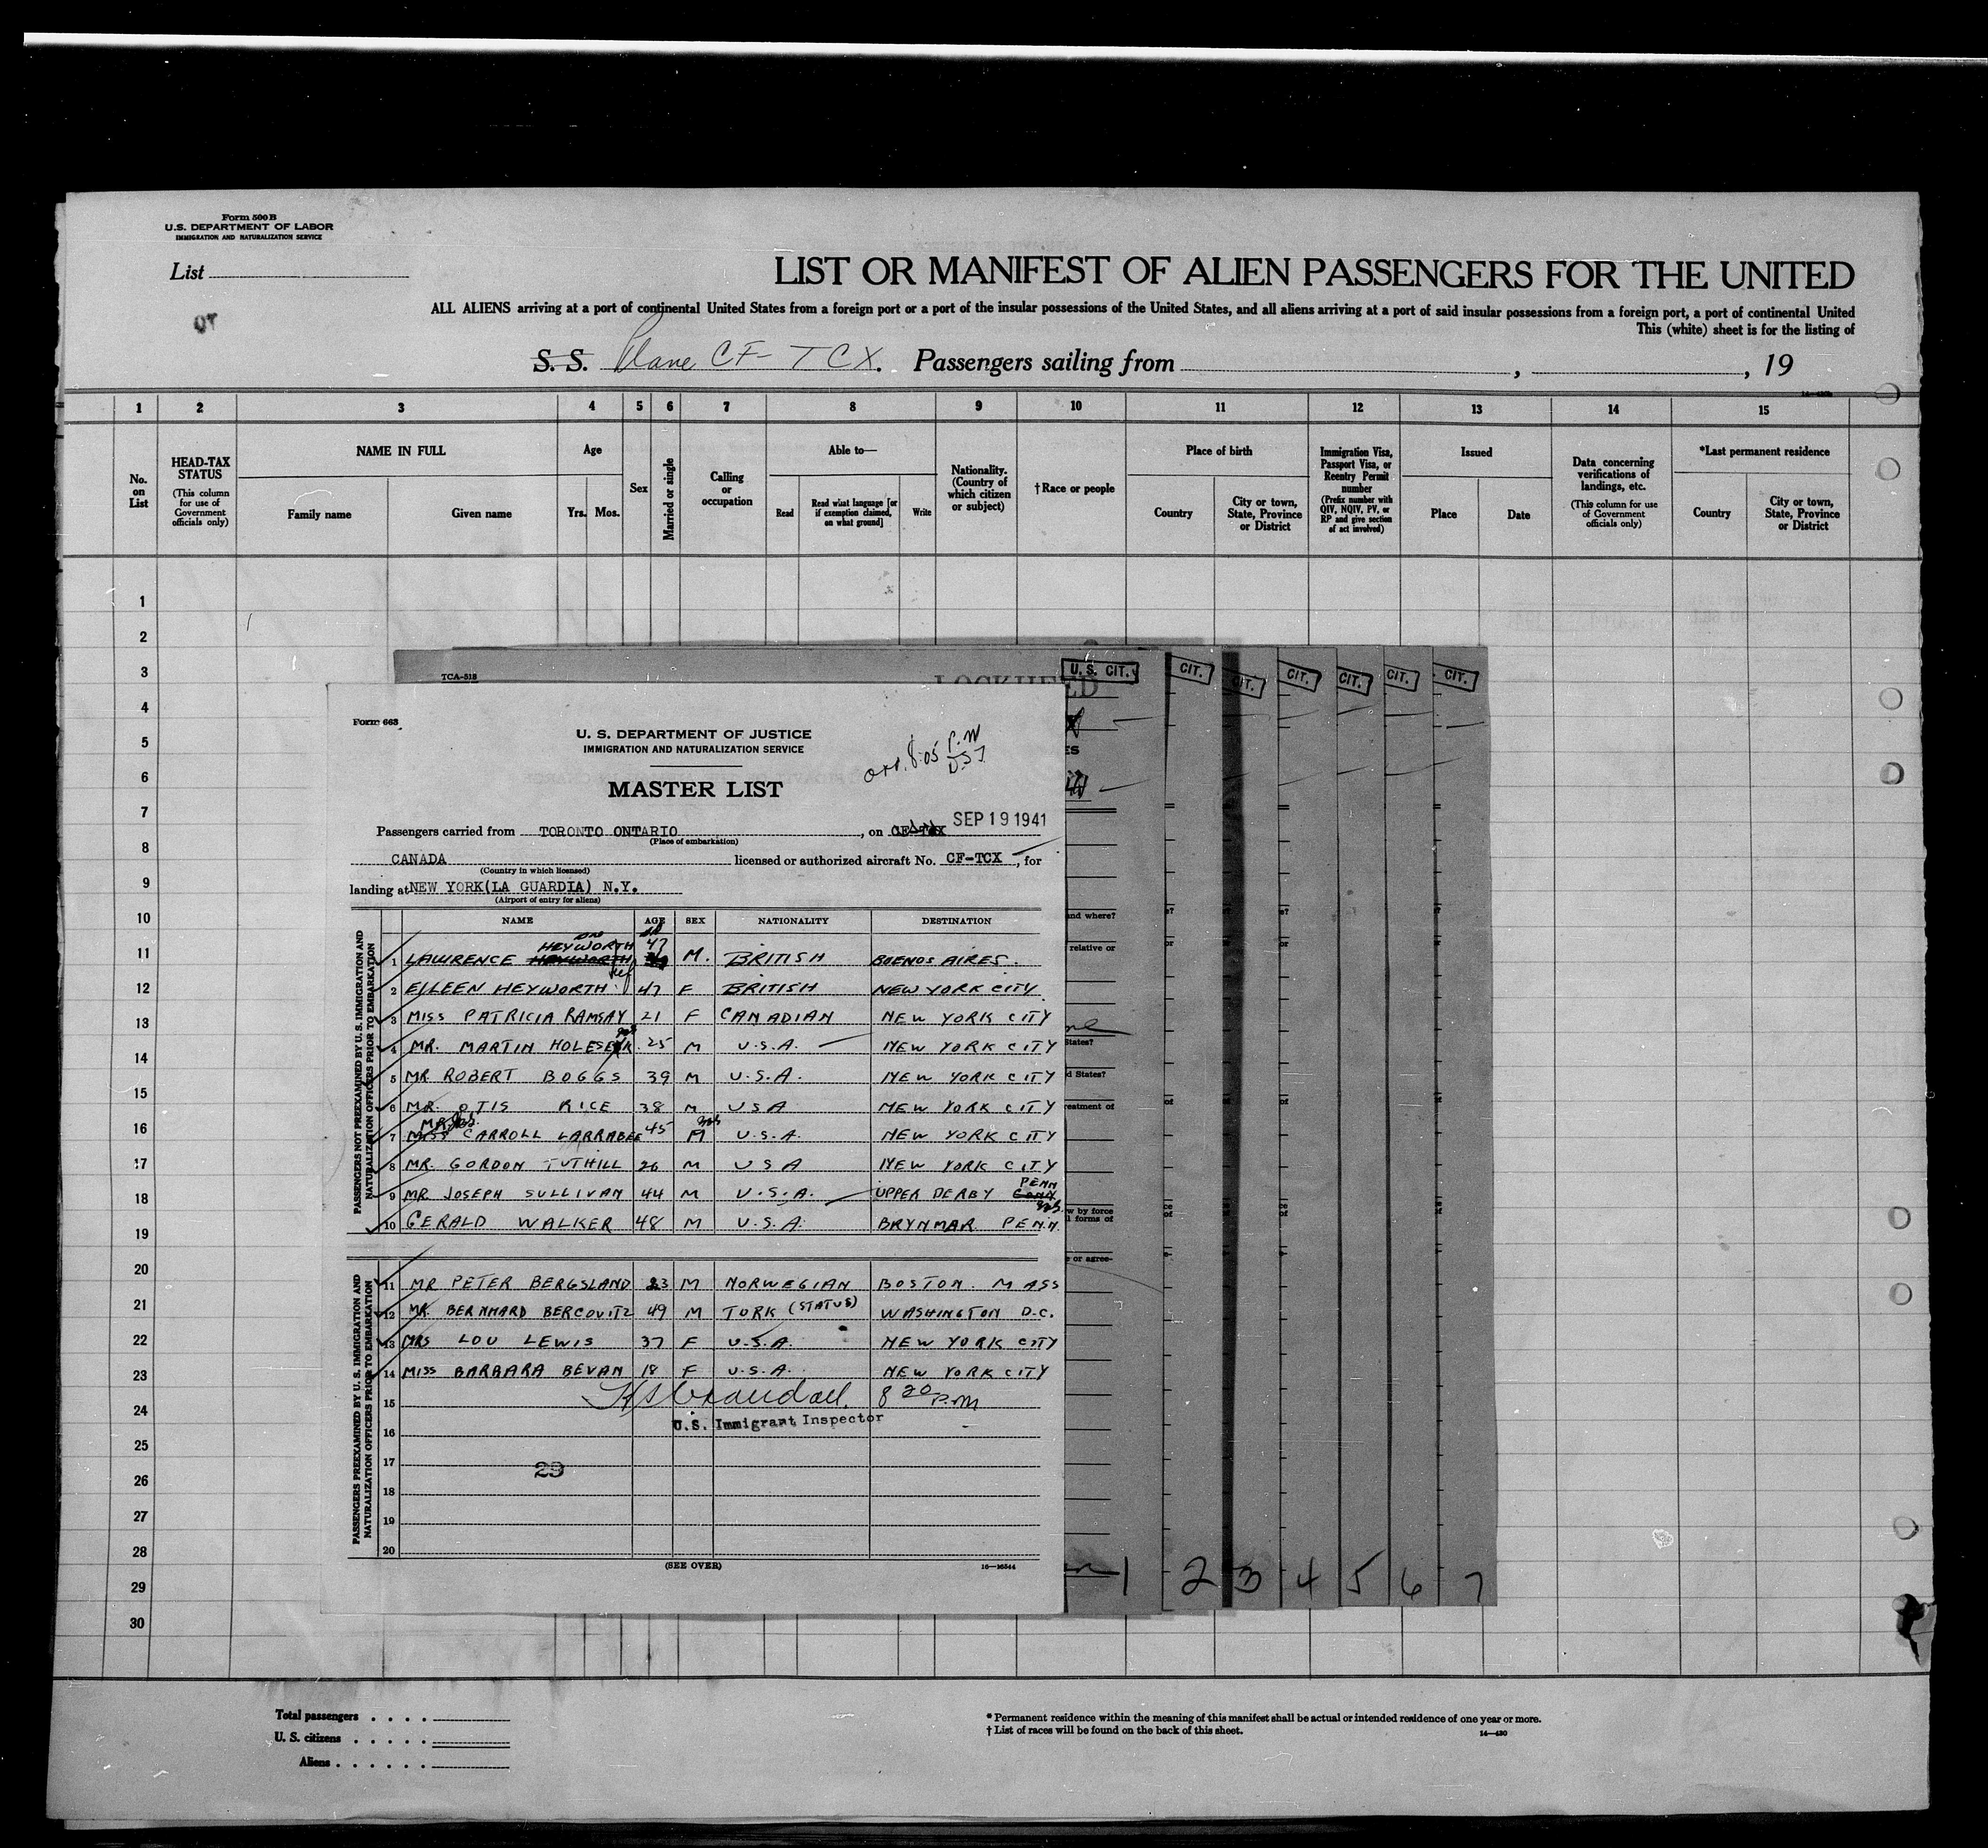 Form 500 B
U.S. DEPARTMENT OF LABOR
IMMIGRATION AND NATURALIZATION SERVICE
List
LIST OR MANIFEST OF ALIEN PASSENGERS FOR THE UNITED
ALL ALIENS arriving at a port of continental United States from a foreign port or a port of the insular possessions of the United States, and all aliens arriving at a port of said insular possessions from a foreign port, a port of continental United
This (white) sheet is for the listing of
S. S. Plane CF-TCX. Passengers sailing from , , 19
1 2 3 4 5 6 7 8 9 10 11 12 13 14 15
No. on List
HEAD-TAX STATUS
(This column for use of Government officials only)
NAME IN FULL
Family name
Given name
Age
Yrs. Mos.
Sex
Married or single
Calling or occupation
Able to—
Read
Read what language [or if exemption claimed, on what ground]
Write
Nationality. (Country of which citizen or subject)
†Race or people
Place of birth
Country
City or town, State, Province or District
Immigration Visa, Passport Visa, or Reentry Permit number
(Prefix number with QIV, NQIV, PV, or RP and give section of act involved)
Issued
Place
Date
Data concerning verifications of landings, etc.
(This column for use of Government officials only)
*Last permanent residence
Country
City or town, State, Province or District
1
2
3
4
5
6
7
8
9
10
11
12
13
14
15
16
17
18
19
20
21
22
23
24
25
26
27
28
29
30
TCA-518
LOCKHEED
U. S. CIT. CIT. CIT. CIT. CIT. CIT. CIT.
Form 663
U. S. DEPARTMENT OF JUSTICE
IMMIGRATION AND NATURALIZATION SERVICE
MASTER LIST
arr. 8:05 P.M
D.S.T
SEP 19 1941
Passengers carried from TORONTO ONTARIO , on CF-TCX
(Place of embarkation)
CANADA licensed or authorized aircraft No. CF-TCX , for
(Country in which licensed)
landing at NEW YORK(LA GUARDIA) N.Y.
(Airport of entry for aliens)
NAME AGE SEX NATIONALITY DESTINATION
PASSENGERS NOT PREEXAMINED BY U. S. IMMIGRATION AND NATURALIZATION OFFICERS PRIOR TO EMBARKATION
1 LAWRENCE HEYWORTH 47 M. BRITISH BUENOS AIRES.
2 EILEEN HEYWORTH 47 F BRITISH NEW YORK CITY.
3 MISS PATRICIA RAMSAY 21 F CANADIAN NEW YORK CITY
4 MR. MARTIN HOLESEK 25 M U.S.A. NEW YORK CITY
5 MR ROBERT BOGGS 39 M U.S.A. NEW YORK CITY
6 MR. OTIS RICE 38 M USA NEW YORK CITY
MR
7 MISS CARROLL LARRABEE 45 M U.S.A. NEW YORK CITY
8 MR. GORDON TUTHILL 26 M USA NEW YORK CITY
9 MR JOSEPH SULLIVAN 44 M U.S.A. UPPER DERBY PENN
10 GERALD WALKER 48 M U.S.A. BRYNMAR PENN.
PASSENGERS PREEXAMINED BY U. S. IMMIGRATION AND NATURALIZATION OFFICERS PRIOR TO EMBARKATION
11 MR PETER BERGSLAND 23 M NORWEGIAN BOSTON. MASS
12 MR. BERNHARD BERCOVITZ 49 M TURK (STATUS) WASHINGTON D.C.
13 MRS LOU LEWIS 37 F U.S.A. NEW YORK CITY
14 MISS BARBARA BEVAN 18 F U.S.A. NEW YORK CITY
15 HS Crandall. 8 20 P.M
U.S. Immigrant Inspector
16
17
29
18
19
20
(SEE OVER)
16—16544
and where?
relative or
States?
d States?
reatment of
w by force
l forms of
e or agree-
1 2 3 4 5 6 7
Total passengers
U. S. citizens
Aliens
* Permanent residence within the meaning of this manifest shall be actual or intended residence of one year or more.
† List of races will be found on the back of this sheet.
14—430